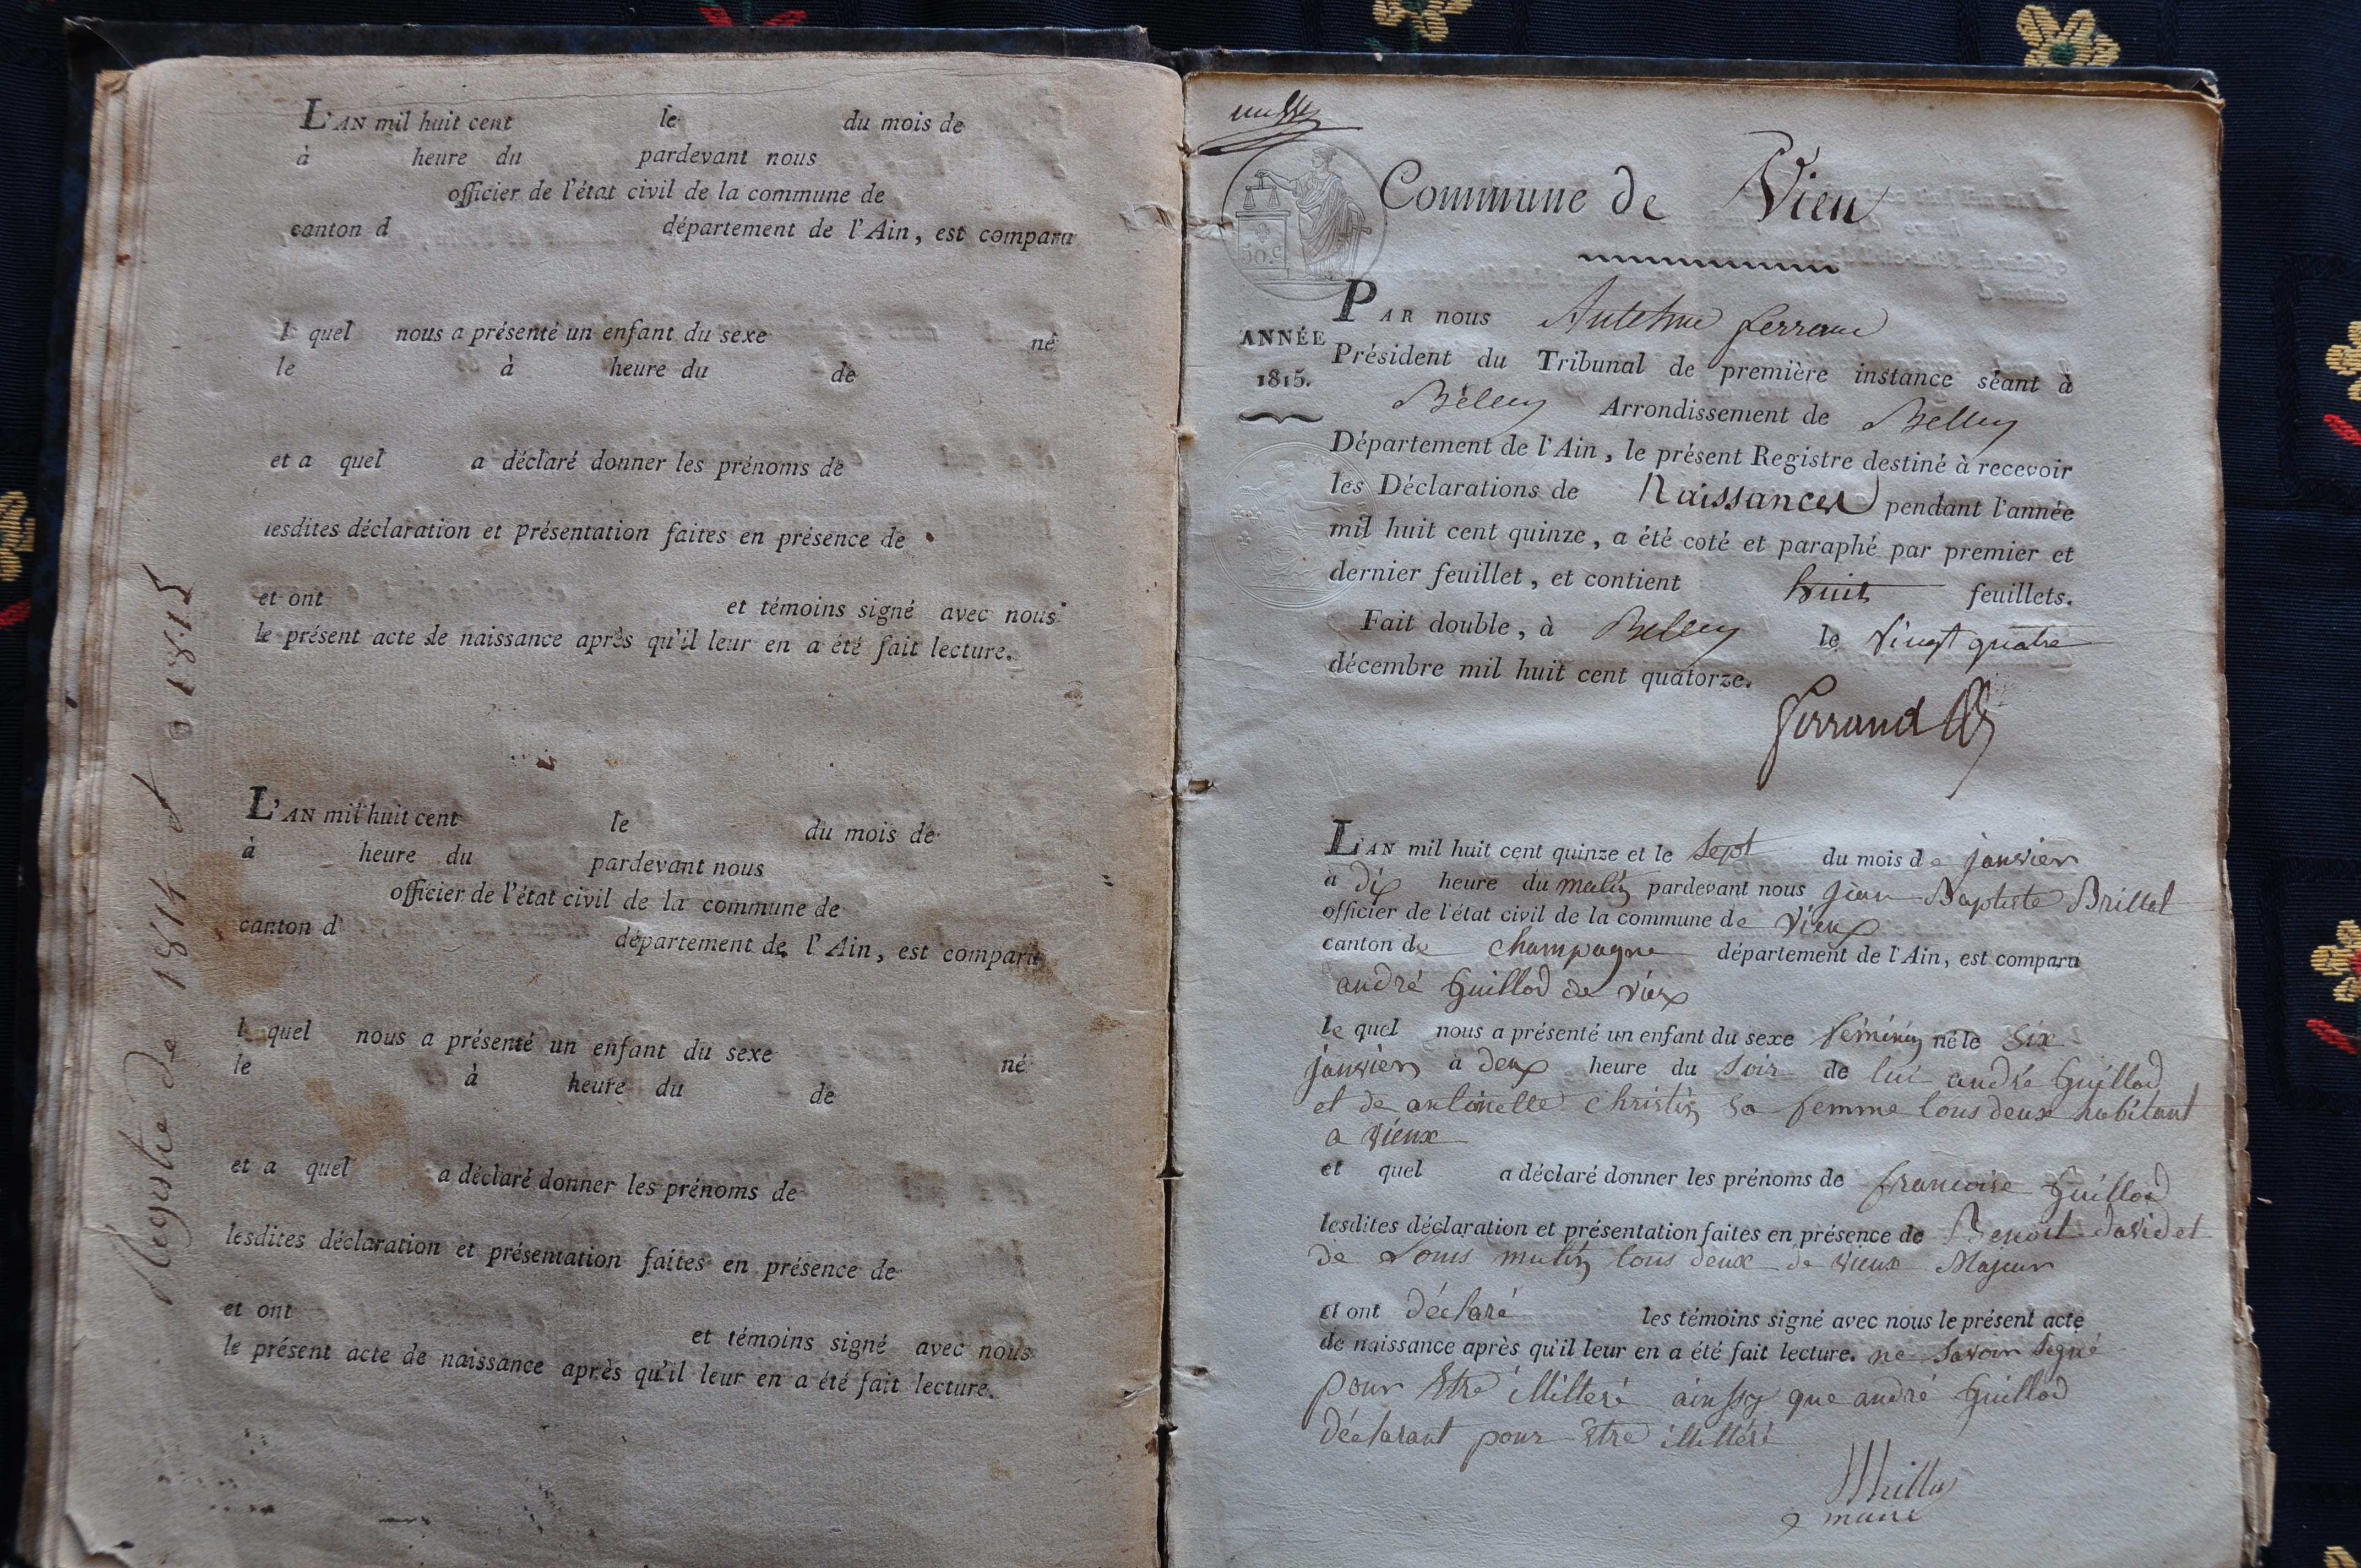 L'AN mil huit cent le du mois de
à heure du pardevant nous
officier de l'état civil de la commune de
canton d département de l'Ain, est comparu
l quel nous a présenté un enfant du sexe né
le à heure du de
et a quel a déclaré donner les prénoms de
lesdites déclaration et présentation faites en présence de
et ont et témoins signé avec nous
le présent acte de naissance après qu'il leur en a été fait lecture.
L'AN mil huit cent le du mois de
à heure du pardevant nous
officier de l'état civil de la commune de
canton d département de l'Ain, est comparu
l quel nous a présenté un enfant du sexe né
le à heure du de
et a quel a déclaré donner les prénoms de
lesdites déclaration et présentation faites en présence de
et ont et témoins signé avec nous
le présent acte de naissance après qu'il leur en a été fait lecture.
Registre de 1814 à 1815
Commune de Vieu
50.C
ANNÉE
1815.
PAR nous Antelme ferrand
Président du Tribunal de première instance séant à
Belley Arrondissement de Belley
Département de l'Ain, le présent Registre destiné à recevoir
les Déclarations de Naissances pendant l'année
mil huit cent quinze, a été coté et paraphé par premier et
dernier feuillet, et contient huit feuillets.
Fait double, à Belley le vingt quatre
décembre mil huit cent quatorze.
ferrand
L'AN mil huit cent quinze et le sept du mois de janvier
à dix heure du matin pardevant nous jean Baptiste Brillat
officier de l'état civil de la commune de vieux
canton de champagne département de l'Ain, est comparu
andré Guillod de vieux
le quel nous a présenté un enfant du sexe féminin né le six
janvier à deux heure du soir de lui andré Guillod
et de antoinette christin sa femme tous deux habitant
a vieux
et quel a déclaré donner les prénoms de francoise Guillod
lesdites déclaration et présentation faites en présence de Benoit david et
de Louis mutin tous deux de vieux Majeur
et ont déclaré les témoins signé avec nous le présent acte
de naissance après qu'il leur en a été fait lecture. ne savoir signé
pour être illitteré ainssy que andré Guillod
déclarant pour être illittéré
Brillat
maire